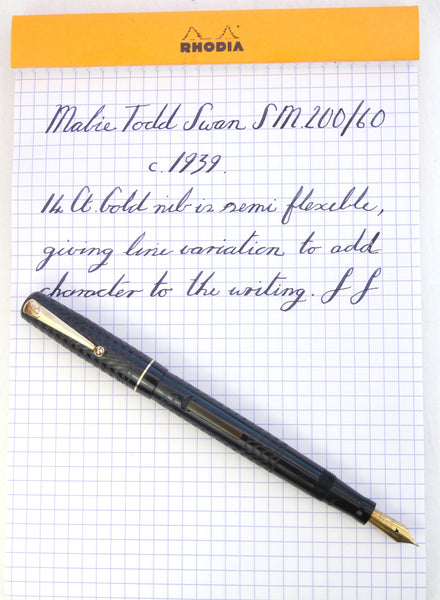 RHODIA
Mabie Todd Swan SM.200/60
c.1939.
14 Ct. Gold nib is semi flexible,
giving line variation to add
character to the writing. f f